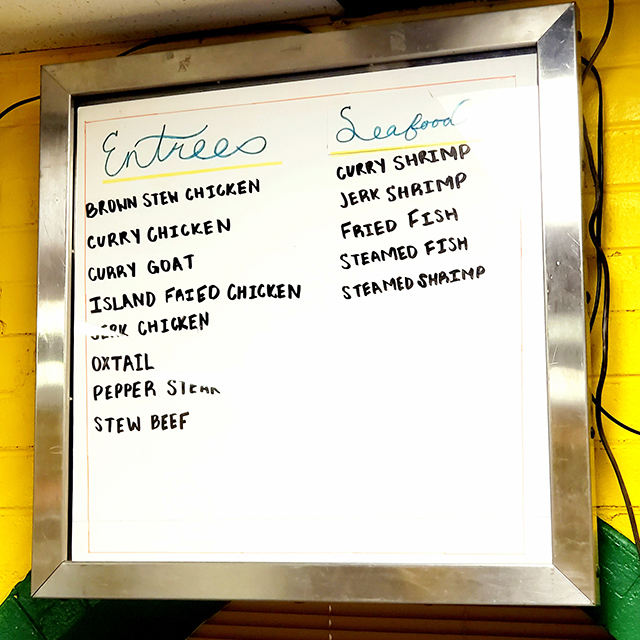 Entrees
BROWN STEW CHICKEN
CURRY CHICKEN
CURRY GOAT
ISLAND FRIED CHICKEN
JERK CHICKEN
OXTAIL
PEPPER STEAK
STEW BEEF
Seafood
CURRY SHRIMP
JERK SHRIMP
FRIED FISH
STEAMED FISH
STEAMED SHRIMP